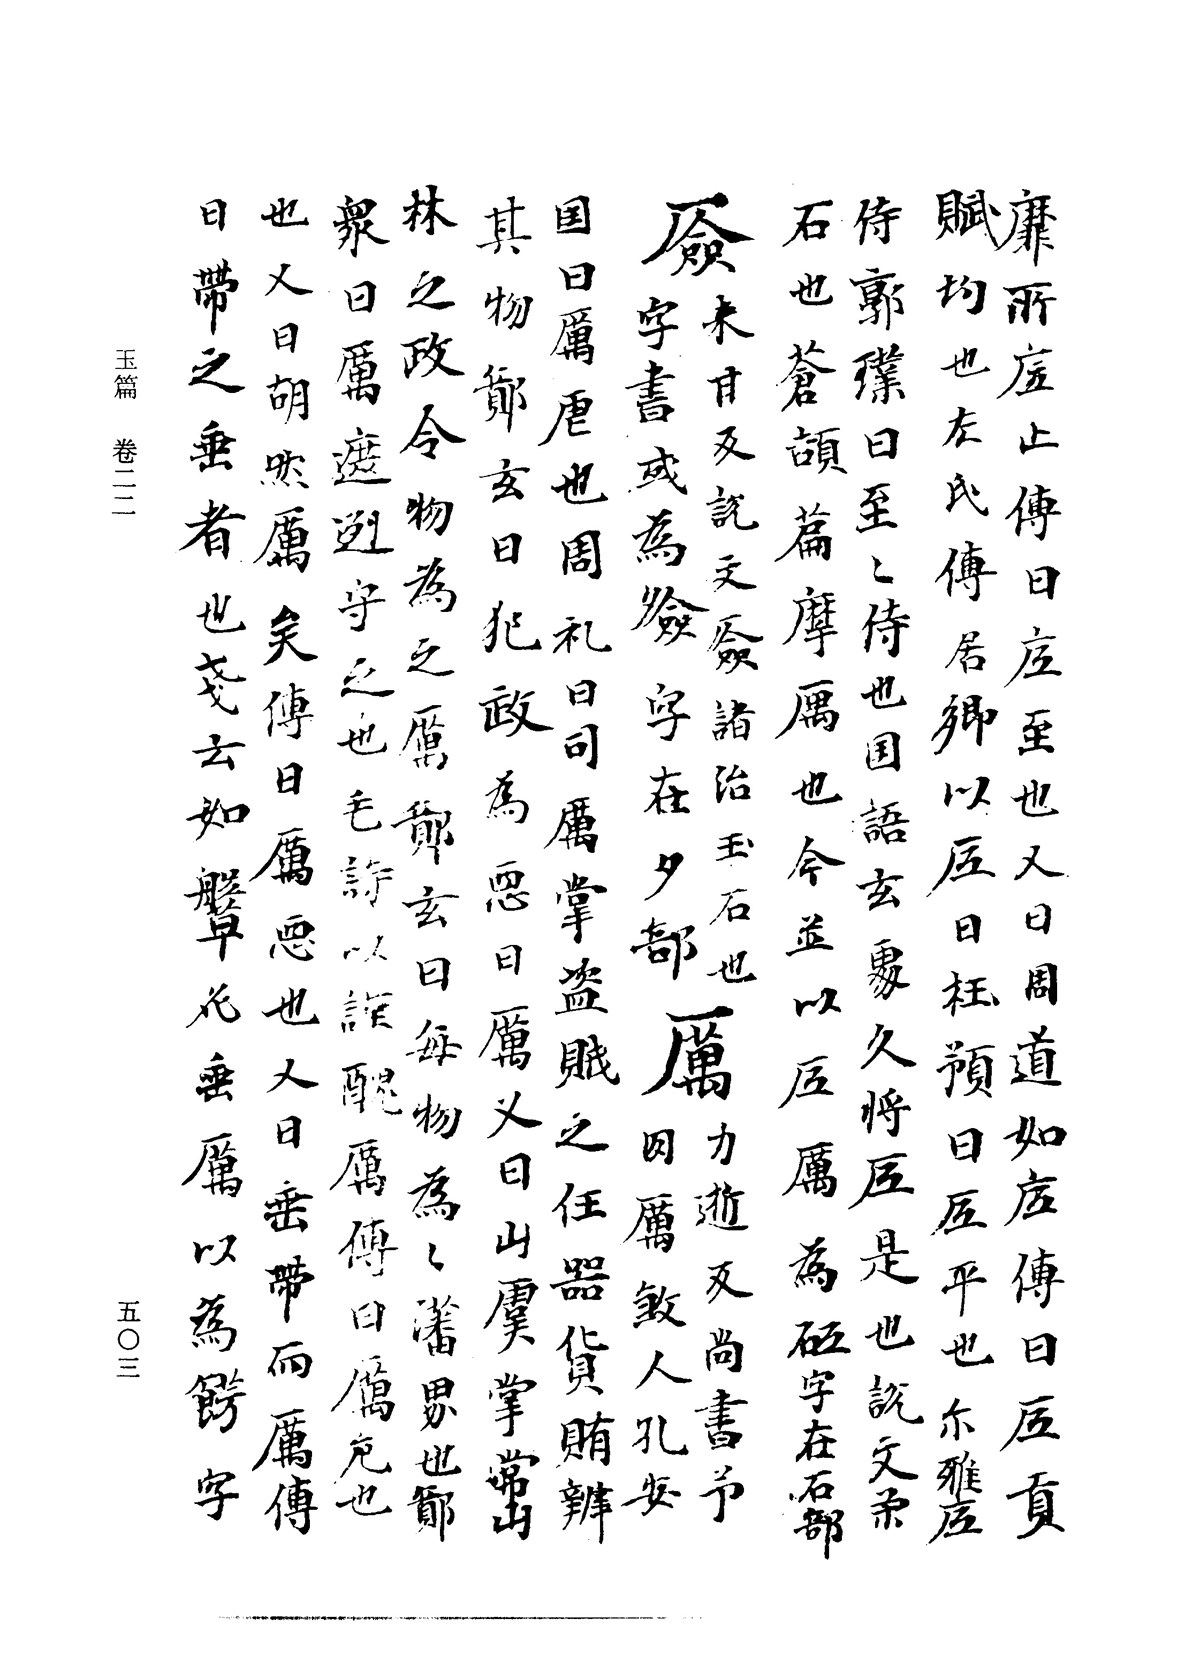 靡所底止傳曰底至也又曰周道如底傳曰底貢
賦均也左氏傳居卿以底日杜預曰底平也尔雅底
待郭璞曰至〻待也国語玄處久將底是也說文柔
石也蒼頡篇摩厲也今並以底厲為砥字在石部
𠪚
来甘反說文𠪚諸治玉石也
字書或為㱘字在夕部
厲
力逝反尚書予
罔厲敘人孔安
国曰厲虐也周礼曰司厲掌盗賊之任器貨賄辨
其物鄭玄曰犯政為惡曰厲又曰山虞掌當山
林之政令物為之厲鄭玄曰每物為〻藩界也鄭
衆曰厲遮迾守之也毛詩以謹醜厲傳曰厲危也
也又曰胡然厲矣傳曰厲惡也又曰垂帶而厲傳
曰帶之垂者也戔云如鞶草花垂厲以為餝字
玉篇 卷二二
五〇三